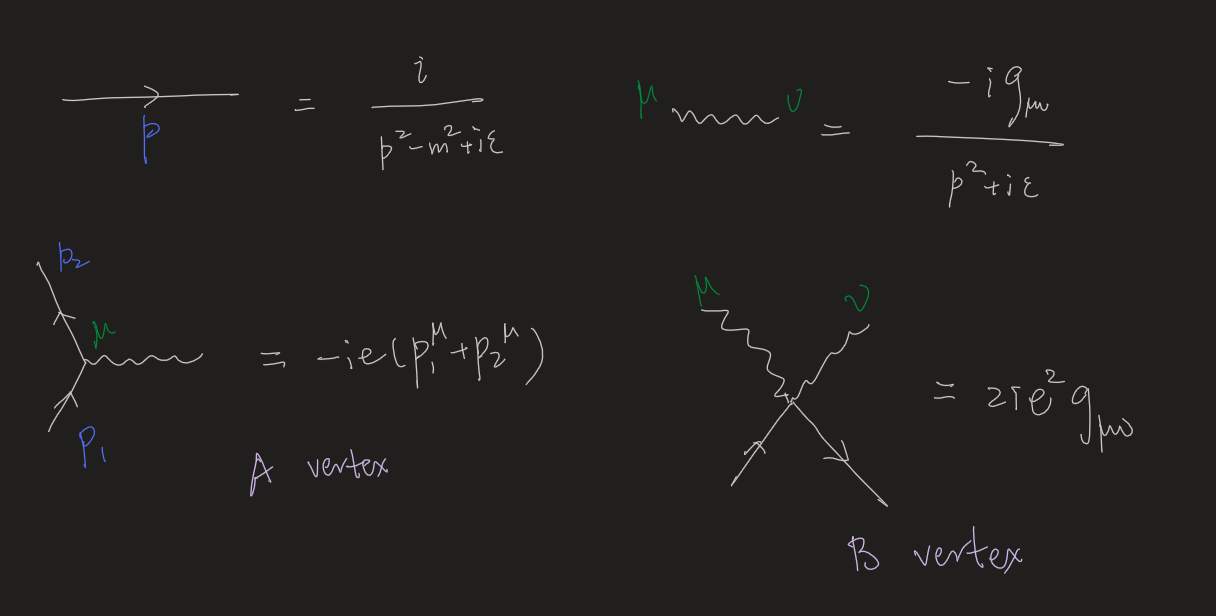 p = i / (p² - m² + iε)
μ ν = -i g_μν / (p² + iε)
p₂
μ
p₁
= -ie(p₁^μ + p₂^μ)
A vertex
μ ν
= 2ie² g_μν
B vertex